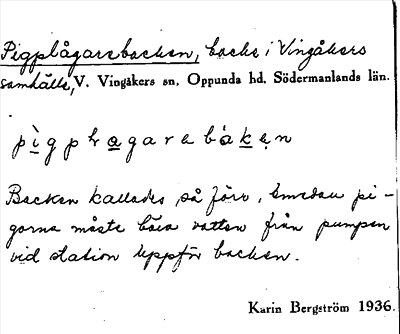 Pigplågarebacken, backe i Vingåkers
samhälle, V. Vingåkers sn, Oppunda hd, Södermanlands län.
Backen kallades så förr, emedan pi-
gorna måste bära vatten från pumpen
vid station uppför backen.
Karin Bergström 1936.